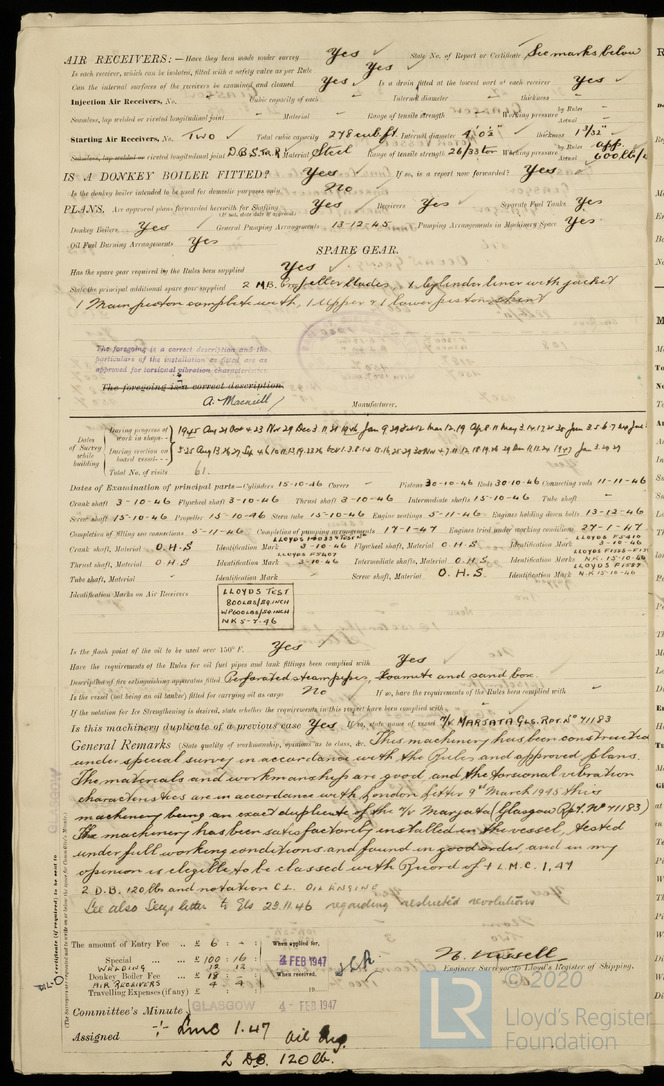 AIR RECEIVERS:— Have they been made under survey Yes State No. of Report or Certificate See marks below
Is each receiver, which can be isolated, fitted with a safety valve as per Rule Yes
Can the internal surfaces of the receivers be examined and cleaned Yes Is a drain fitted at the lowest part of each receiver Yes
Injection Air Receivers, No. - Cubic capacity of each - Internal diameter - thickness -
Seamless, lap welded or riveted longitudinal joint - Material - Range of tensile strength - Working pressure by Rules - Actual -
Starting Air Receivers, No. Two Total cubic capacity 278 cub ft Internal diameter 4' 0½" thickness 1 3/32"
Seamless, lap welded or riveted longitudinal joint D.B.S.T.R.R Material Steel Range of tensile strength 26/33 ton Working pressure by Rules app. Actual 600 lb/
IS A DONKEY BOILER FITTED? Yes If so, is a report now forwarded? Yes
Is the donkey boiler intended to be used for domestic purposes only No
PLANS. Are approved plans forwarded herewith for Shafting Yes Receivers Yes Separate Fuel Tanks Yes
(If not, state date of approval)
Donkey Boilers Yes General Pumping Arrangements 13-12-45 Pumping Arrangements in Machinery Space Yes
Oil Fuel Burning Arrangements Yes
SPARE GEAR.
Has the spare gear required by the Rules been supplied Yes
State the principal additional spare gear supplied 2 M.B. Propeller blades, 1 Cylinder liner with jacket
1 Main piston complete with, 1 upper & 1 lower piston skirt
The foregoing is a correct description and the
particulars of the installation as fitted are as
approved for torsional vibration characteristics.
The foregoing is a correct description,
Manufacturer.
Dates of Survey while building
During progress of work in shops - -
During erection on board vessel - - -
Total No. of visits 61.
Dates of Examination of principal parts—Cylinders 15-10-46 Covers - Pistons 30-10-46 Rods 30-10-46 Connecting rods 11-11-46
Crank shaft 3-10-46 Flywheel shaft 3-10-46 Thrust shaft 3-10-46 Intermediate shafts 15-10-46 Tube shaft -
Screw shaft 15-10-46 Propeller 15-10-46 Stern tube 15-10-46 Engine seatings 5-11-46 Engines holding down bolts 13-12-46
Completion of fitting sea connections 5-11-46 Completion of pumping arrangements 17-1-47 Engines tried under working conditions 27-1-47
Crank shaft, Material O.H.S Identification Mark 3-10-46 Flywheel shaft, Material O.H.S. Identification Mark LLOYDS F5410 3-10-46
Thrust shaft, Material O.H.S Identification Mark LLOYDS F5407 3-10-46 Intermediate shafts, Material O.H.S. Identification Marks N.K. 15-10-46
Tube shaft, Material - Identification Mark - Screw shaft, Material O.H.S. Identification Mark N.K 15-10-46
Identification Marks on Air Receivers
LLOYDS TEST
800 LBS/SQ.INCH
WP 600 LBS/SQ.INCH
N K 5-7-46
Is the flash point of the oil to be used over 150° F. Yes
Have the requirements of the Rules for oil fuel pipes and tank fittings been complied with Yes
Description of fire extinguishing apparatus fitted Perforated steam pipes, Foamite and sand box.
Is the vessel (not being an oil tanker) fitted for carrying oil as cargo No If so, have the requirements of the Rules been complied with -
If the notation for Ice Strengthening is desired, state whether the requirements in this respect have been complied with -
Is this machinery duplicate of a previous case Yes If so, state name of vessel T/V MARJATA GLS. RPT. No 71183
General Remarks (State quality of workmanship, opinions as to class, &c. This machinery has been constructed
under special survey in accordance with the Rules and approved plans.
The materials and workmanship are good, and the torsional vibration
characteristics are in accordance with London letter 9th March 1945 this
machinery being an exact duplicate of the T/V Marjata (Glasgow Rpt. No 71183)
The machinery has been satisfactorily installed in the vessel, tested
under full working conditions and found in good order, and in my
opinion is eligible to be classed with Record of + L.M.C. 1,47
2 D.B. 120 lbs and notation C.L. OIL ENGINE
See also Secys letter to Gls 29.11.46 regarding restricted revolutions
The amount of Entry Fee .. £ 6 : - :
Special .. £ 100 : 16 :
WELDING 12 12
Donkey Boiler Fee .. £ 18 : - :
AIR RECEIVERS 4 4
Travelling Expenses (if any) £ : :
When applied for,
4 FEB 1947
When received,
19
Engineer Surveyor to Lloyd's Register of Shipping.
Committee's Minute GLASGOW 4 - FEB 1947
Assigned + LMC 1.47 Oil Eng.
2 D.B. 120 lb.
(The Surveyors are requested not to write on or below the space for Committee's Minute.)
GLASGOW
© 2020
LR
Lloyd's Register
Foundation